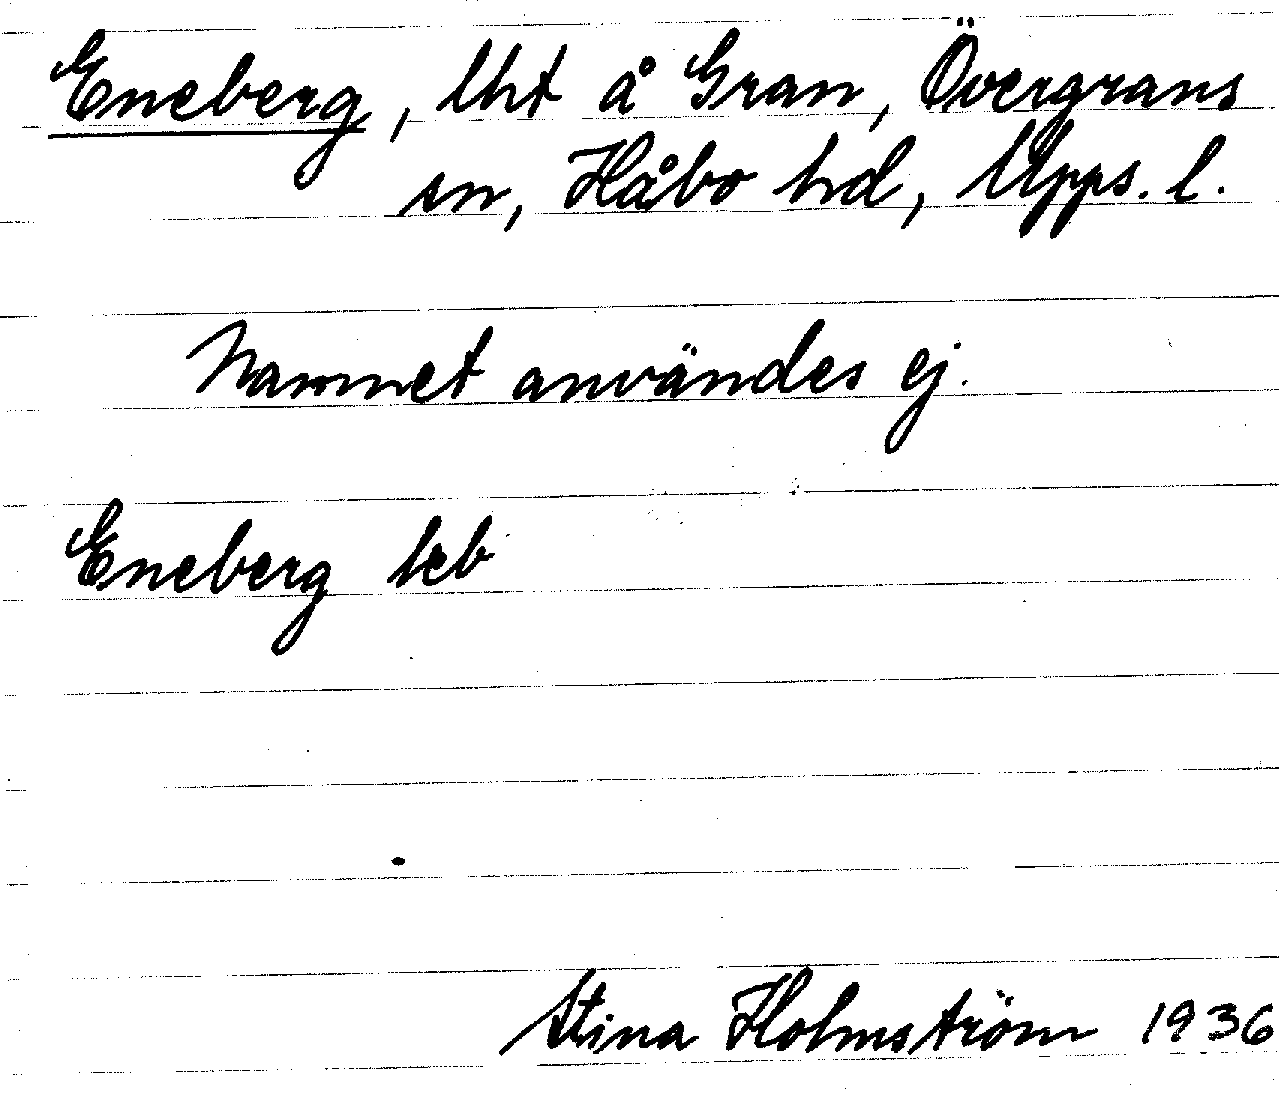 Eneberg, lht å Gran, Övergrans
sn, Håbo hd, Upps. l.
Namnet användes ej.
Eneberg jeb
Stina Holmström 1936